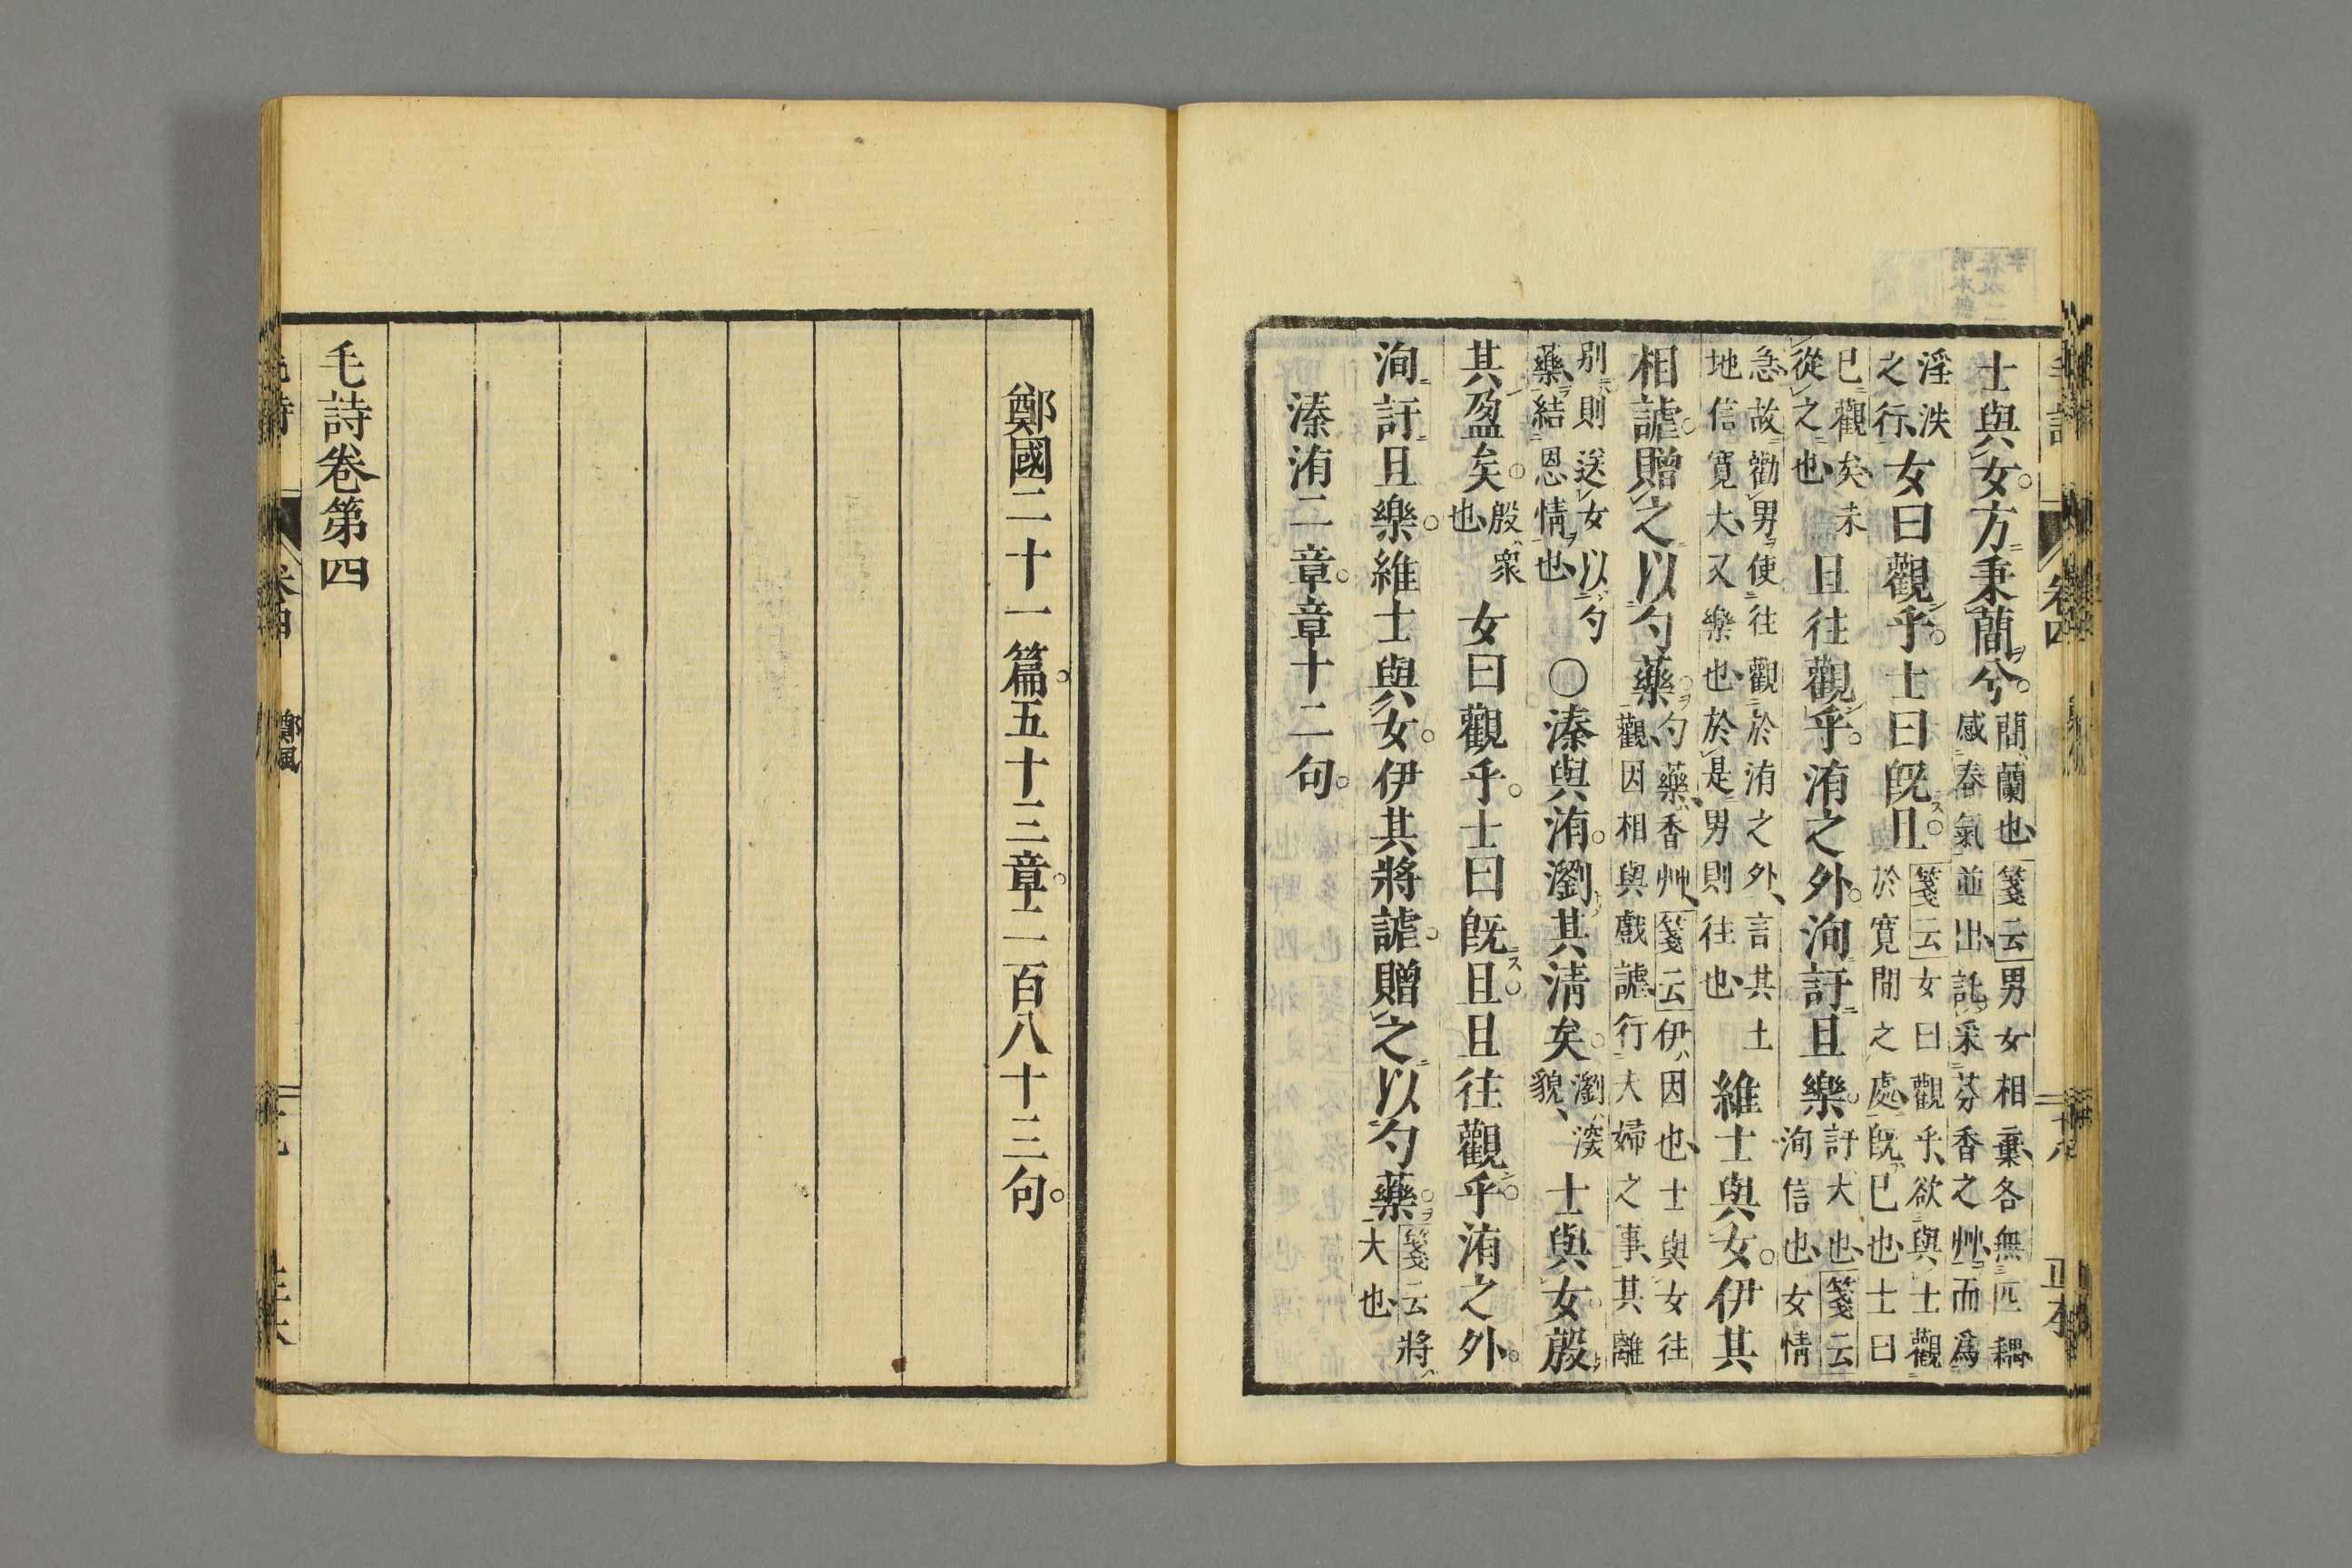 士與女。方秉蕳兮。蕳、蘭也、箋云男女相棄、各無匹耦、感春氣並出、託采芬香之艸、而爲
淫泆之行、女曰觀乎。士曰旣且。箋云女曰觀乎、欲與士觀於寬閒之處、旣已也、士曰
已觀矣、未從之也、且往觀乎。洧之外。洵訏且樂。訏大也、箋云洵信也、女情
急、故勸男使往觀於洧之外、言其土地信寬大、又樂也、於是男則往也、維士與女。伊其
相謔。贈之以勺藥。勺藥、香艸、箋云伊因也、士與女往觀、因相與戲謔、行夫婦之事、其離
別、則送女以勺藥、結恩情也、〇溱與洧。瀏其淸矣。瀏、深貌、士與女。殷
其盈矣。殷、衆也、女曰觀乎。士曰旣且。且往觀乎。洧之外。
洵訏且樂。維士與女。伊其將謔。贈之以勺藥。箋云將、大也、
溱洧二章。章十二句。
鄭國二十一篇。五十三章。二百八十三句。
毛詩卷第四
鄭風